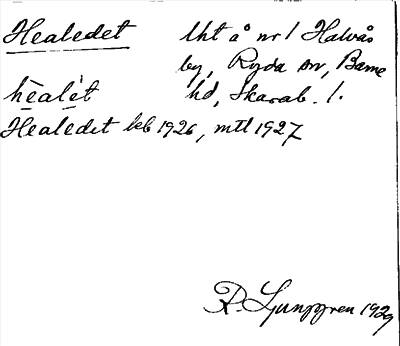 Healedet lht å nr 1 Halvås
by, Ryda sn, Barne
hèalèt hd, Skarab. l.
Healedet leb 1926, mtl 1927
R. Ljunggren 1929